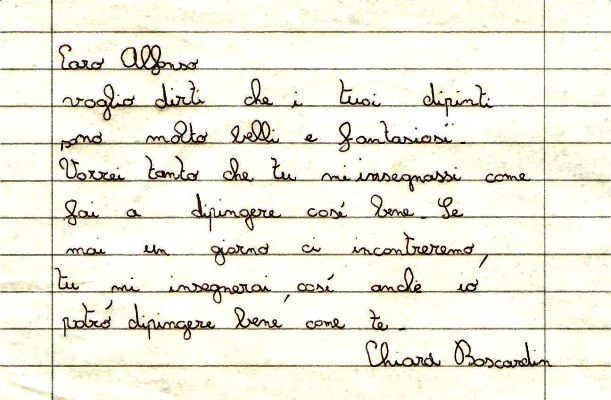 Caro Alfonso
voglio dirti che i tuoi dipinti
sono molto belli e fantasiosi.
Vorrei tanto che tu mi insegnassi come
fai a dipingere così bene. Se
mai un giorno ci incontreremo,
tu mi insegnerai, così anche io
potrò dipingere bene come te.
Chiara Boscardin